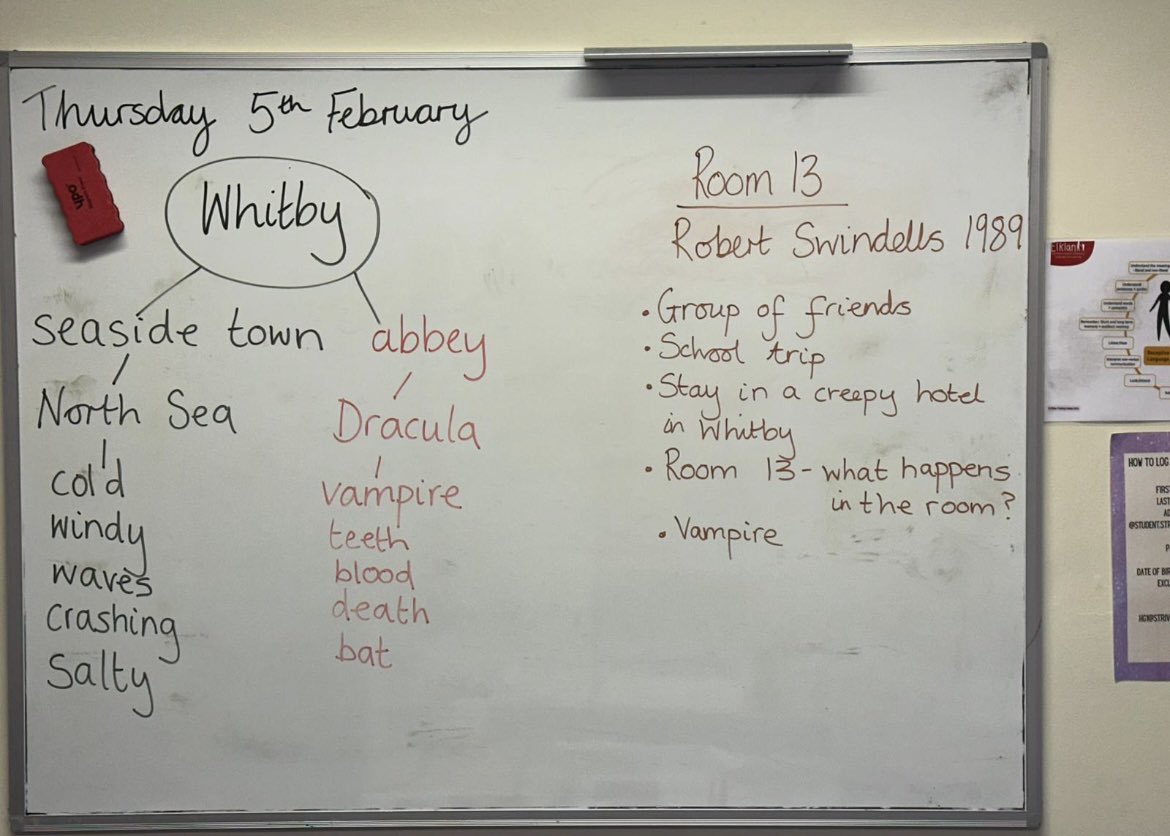 Thursday 5th February
Whitby
seaside town
North Sea
cold
windy
waves
crashing
salty
abbey
Dracula
vampire
teeth
blood
death
bat
Room 13
Robert Swindells 1989
• Group of friends
• School trip
• Stay in a creepy hotel
in Whitby
• Room 13 - what happens
in the room?
• Vampire
Elklan
HOW TO LOG
FIRS
LAST
@STUDENT.STR
DATE OF BIR
EXCL